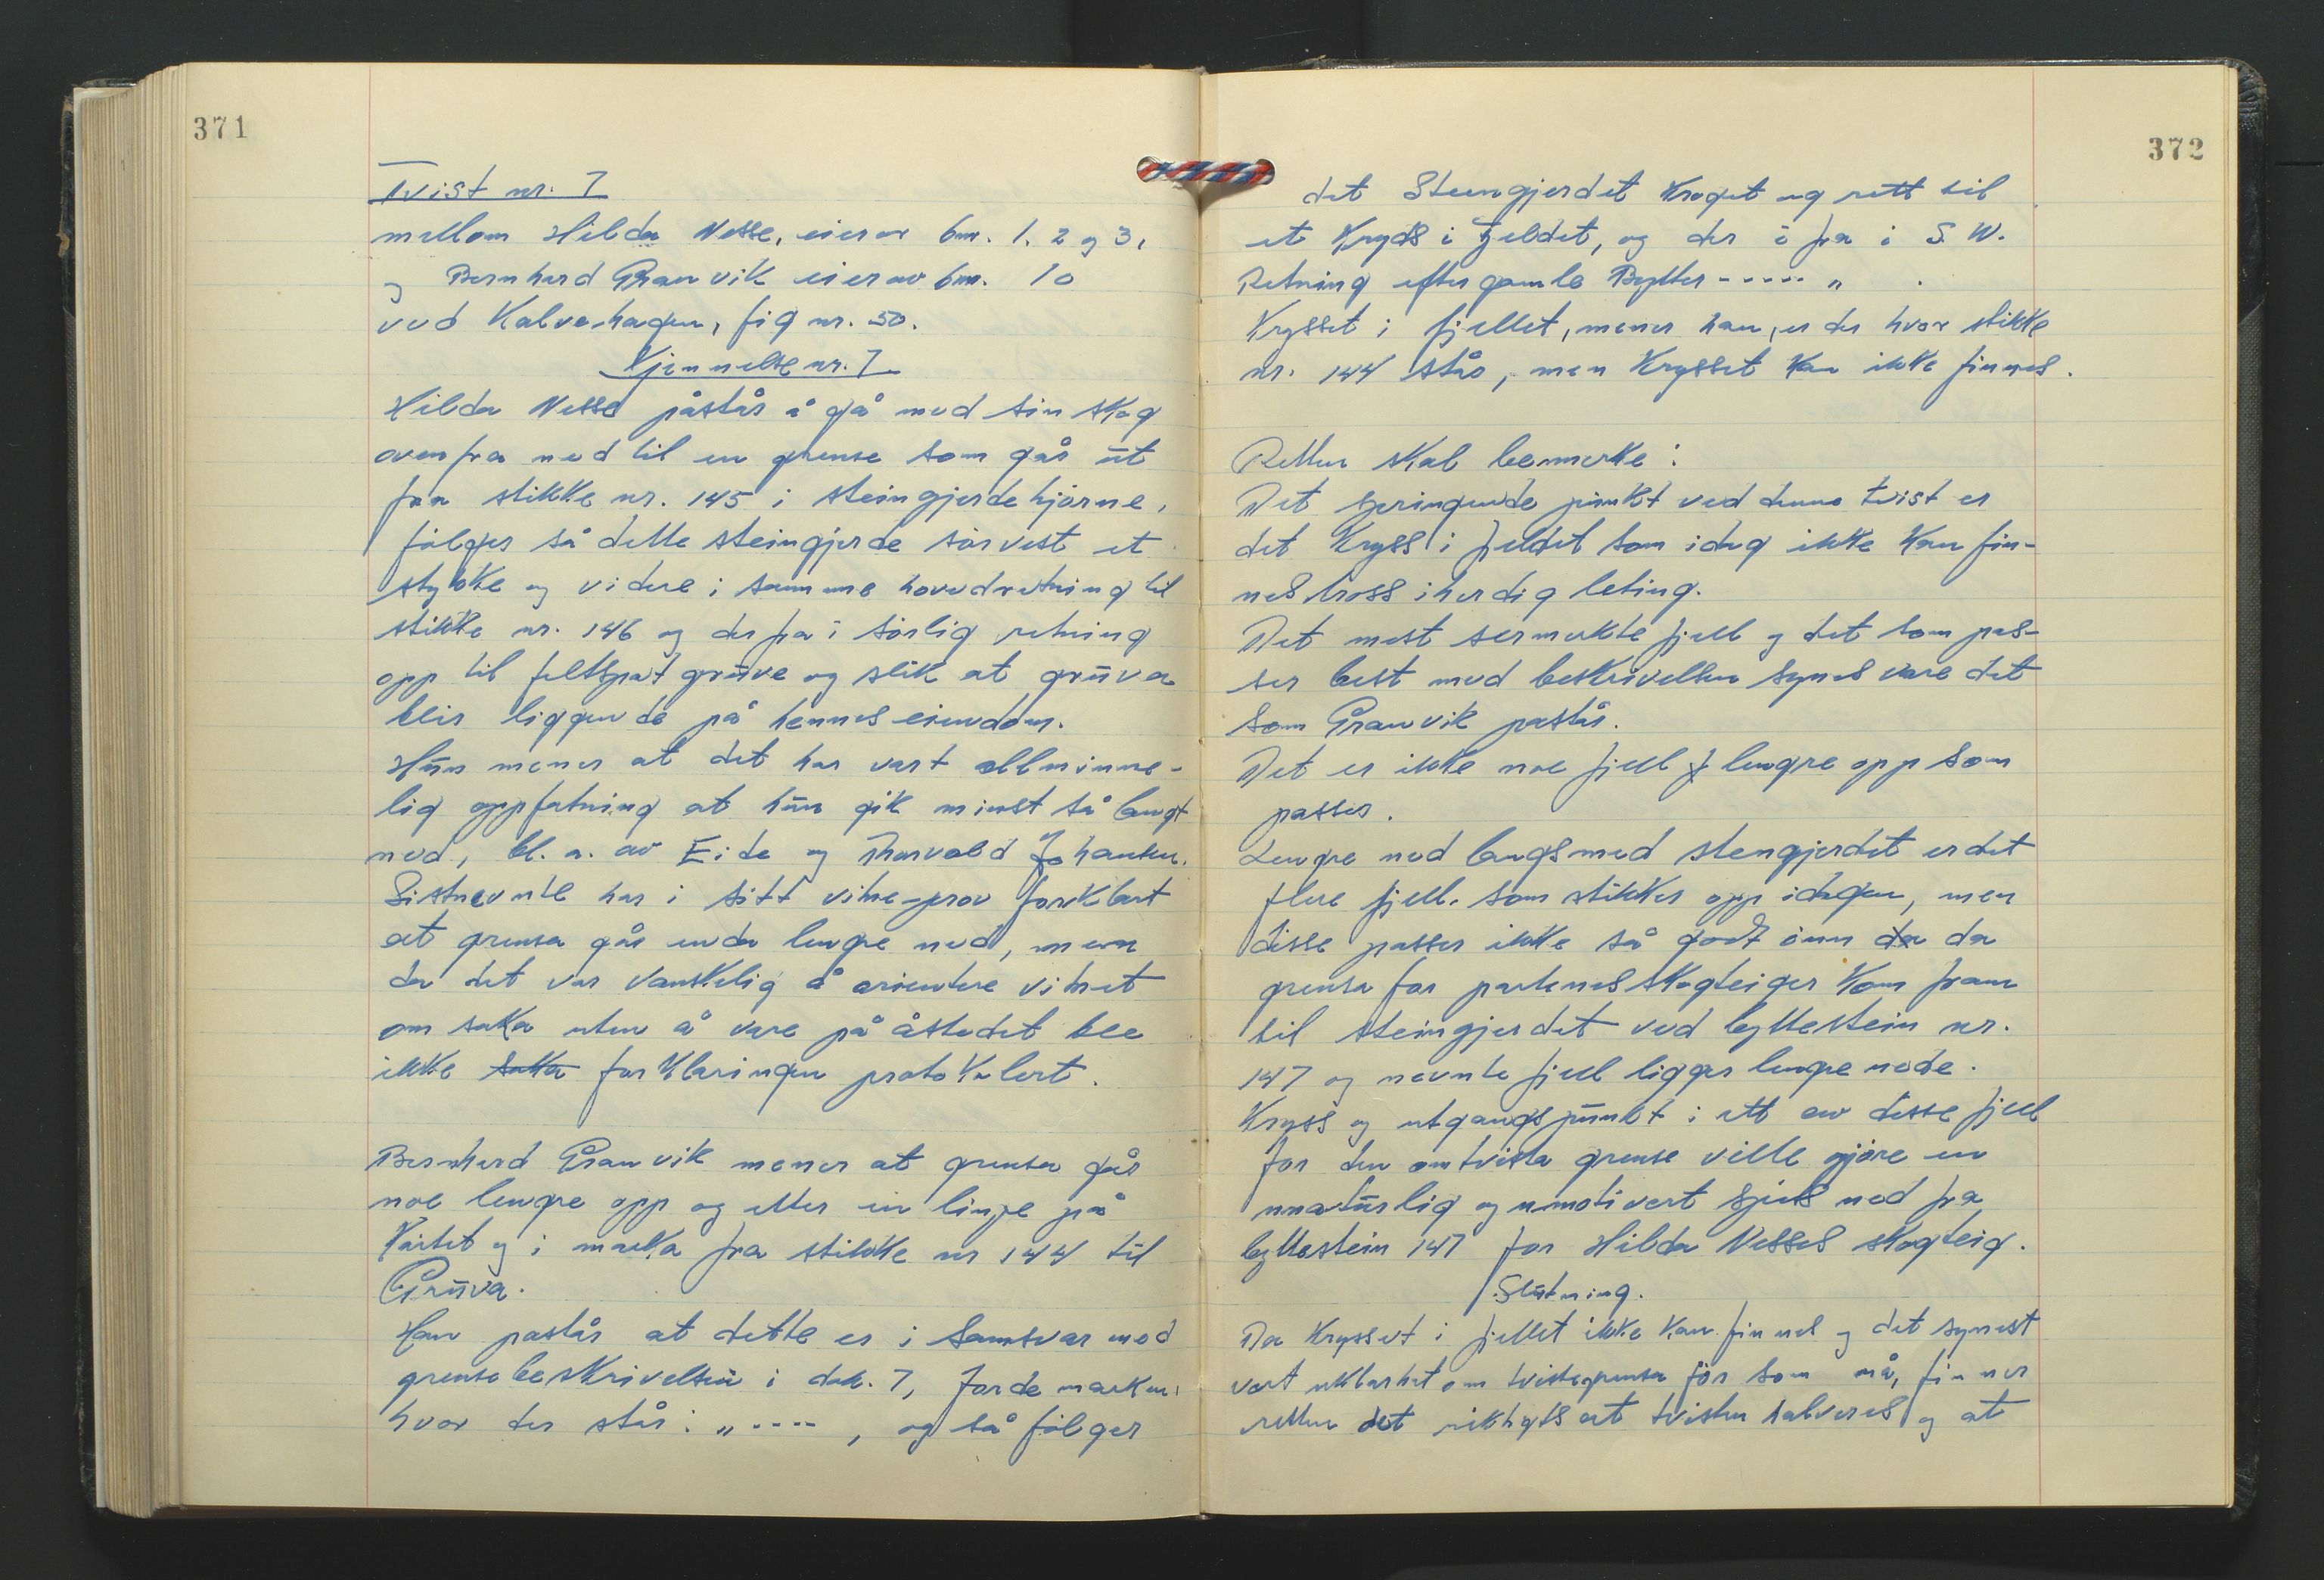 371
Tvist nr. 7
mellom Hilda Nesse, eier av bnr. 1, 2 og 3,
og Bernhard Granvik eier av bnr. 10
ved Kalvehagen, fig nr. 50.
Kjennelse nr. 7
Hilda Nesse påstår å gå med sin skog
ovenfra ned til en grense som går ut
fra stikke nr. 145 i steingjerdehjørne,
følger så dette steingjerde sørvest et
stykke og videre i samme hovedretning til
stikke nr. 146 og derfra i sørlig retning
opp til feltspatgruve og slik at gruva
blir liggende på hennes eiendom.
Hun mener at det har vært allminne-
lig oppfatning at hun gik minst så langt
ned, bl. a. av Eide og Thorvald Johansen.
Sistnevnte har i sitt vitneprov forklart
at grensa går enda lengre ned, men
da det var vanskelig å orientere vitnet
om saka uten å være på åstedet ble
ikke saka forklaringen protokolert.
Bernhard Granvik mener at grensa går
noe lengre opp og etter en linje på
Kartet og i marka fra stikke nr 144 til
Gruva.
Han påstår at dette er i samsvar med
grensebeskrivelsen i dok. 7, Jordemarken:
hvor der står: „ ----, og så følger
372
det Steengjerdet Kroget og rett til
et Kryds i Fjeldet, og der i fra i S. W.
Retning efter gamle Bytter ----- „ .
Krysset i fjellet, mener han, er der hvor stikke
nr. 144 står, men Krysset kan ikke finnes.
Retten skal bemerke:
Det springende punkt ved denne tvist er
det Kryss i fjeldet som idag ikke kan fin-
nes tross iherdig leting.
Det mest sermerkte fjell og det som pas-
ser best med beskrivelsen synes være det
som Granvik påstår.
Det er ikke noe fjell lengre opp som
passer.
Lengre ned langs med stengjerdet er det
flere fjell som stikker opp i dagen, men
disse passer ikke så godt inn da da
grensa for partenes skogteiger kom fram
til steingjerdet ved byttestein nr.
147 og nevnte fjell ligger lengre nede.
Kryss og utgangspunkt i ett av disse fjell
for den omtvista grense ville gjøre en
unaturlig og umotivert spiss ned fra
byttestein 147 for Hilda Nesses skogteig.
Slutning.
Da Krysset i fjellet ikke kan finnes og det synest
vert uklarhet om tvistegrensa før som nå, finner
retten det riktigst at tvisten halveres og at